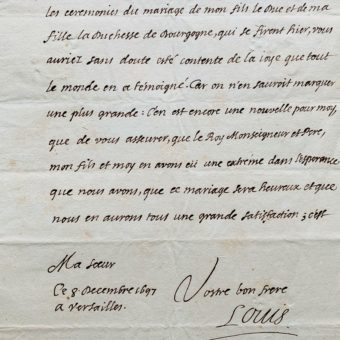 les ceremonies du mariage de mon fils le Duc et de ma
fille la Duchesse de Bourgogne, qui se firent hier, vous
auriez sans doute esté contente de la ioye que tout
le monde en a témoigné. Car on n'en sauroit marquer
une plus grande: C'en est encore une nouvelle pour moy,
que de vous assurer, que le Roy Monseigneur et Pere,
mon fils et moy en avons eü une extrème dans l'esperance
que nous avons, que ce mariage sera heureux et que
nous en aurons tous une grande satisfaction; c'est
Ma sœur
Ce 8 Decembre 1697
a Versailles.
Vostre bon frere
Louis